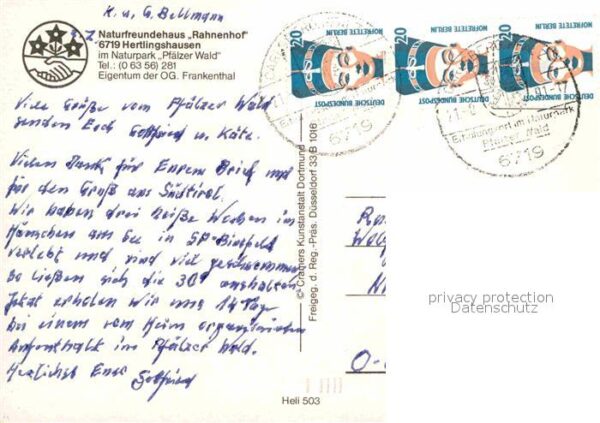 K. u. G. Bellmann
z.Z.
Naturfreundehaus „Rahnenhof"
6719 Hertlingshausen
im Naturpark „Pfälzer Wald"
Tel.: (0 63 56) 281
Eigentum der OG. Frankenthal
Viele Grüße vom Pfälzer Wald
senden Euch Gottfried u. Käte.
Vielen Dank für Euren Brief und
für den Gruß aus Südtirol.
Wir haben drei heiße Wochen im
Häuschen am See in
verlebt und sind viel geschwommen
So ließen sich die 30° aushalten
Jetzt erholen wir uns 14 Tage
bei einem vom Heim organisierten
Aufenthalt im Pfälzer Wald.
Herzlichst Euer Gottfried
© Cramers Kunstanstalt Dortmund
Freigeg. d. Reg.-Präs. Düsseldorf 33 B 1016
Heli 503
20
NOFRETETE BERLIN
DEUTSCHE BUNDESPOST
20
NOFRETETE BERLIN
DEUTSCHE BUNDESPOST
20
NOFRETETE BERLIN
DEUTSCHE BUNDESPOST
6719
Erholungsort im Naturpark
Pfälzer Wald
6719
O-
privacy protection
Datenschutz